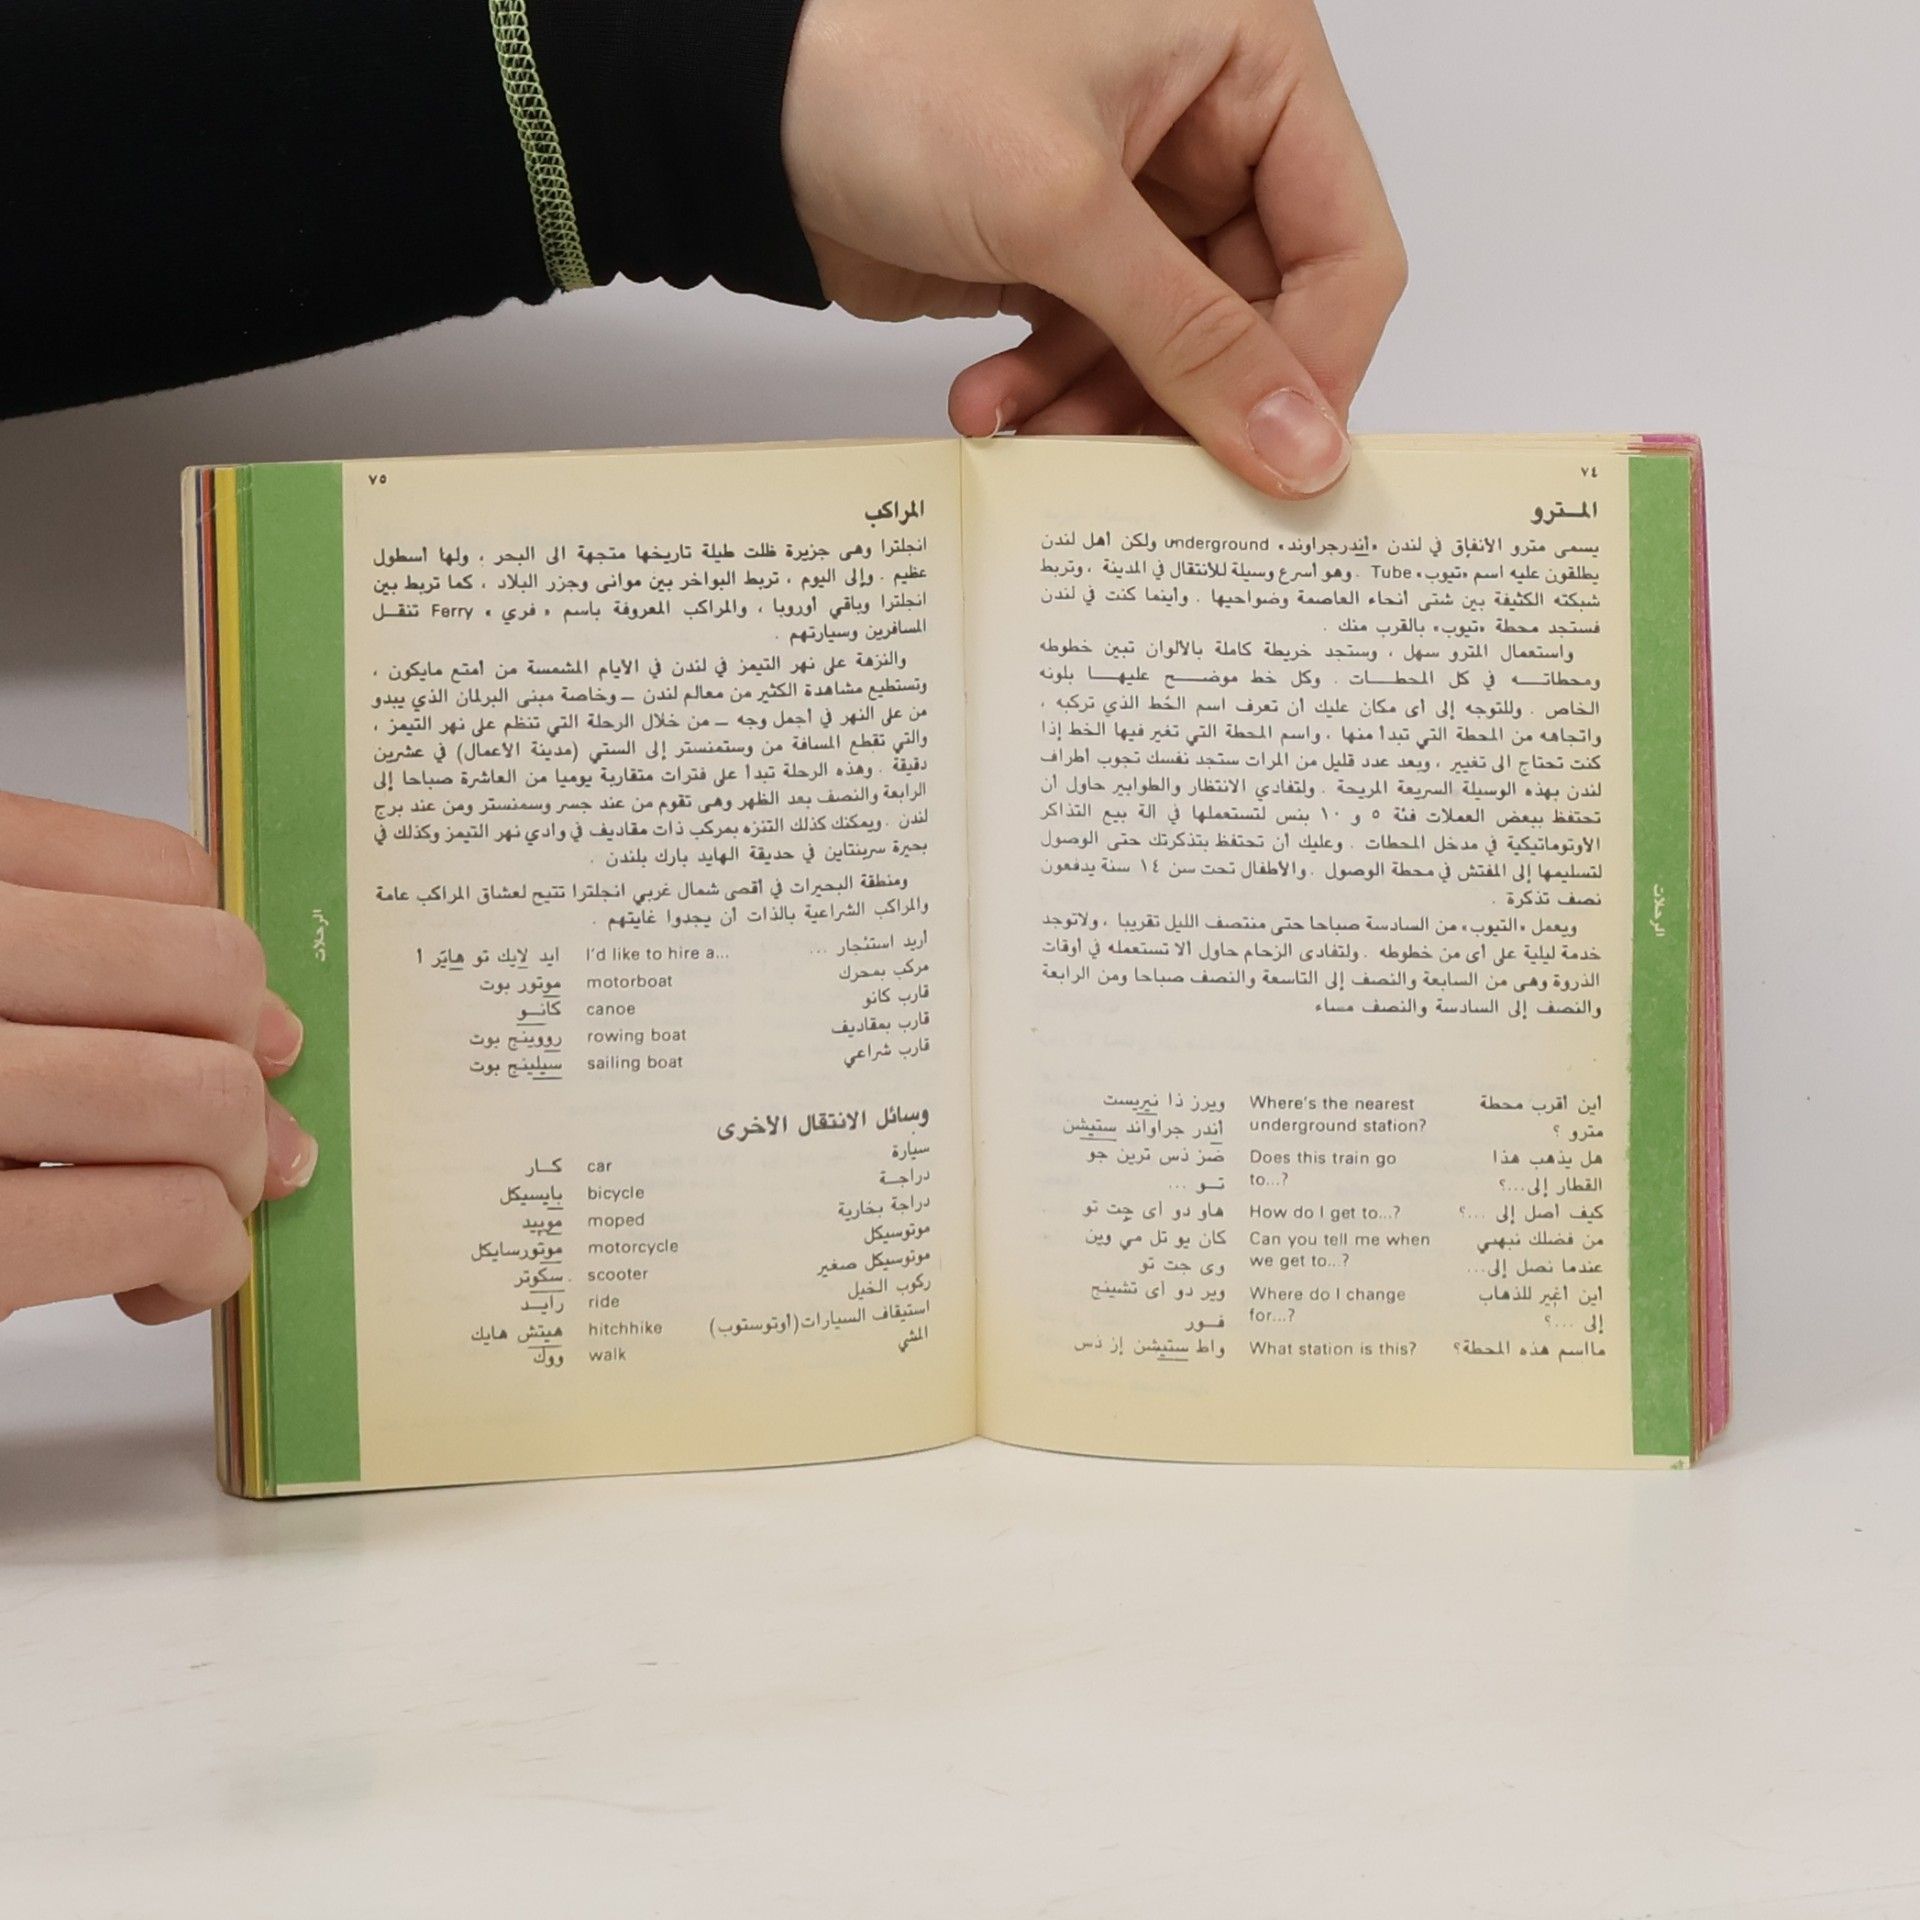 ٧٤
المــترو
يسمى مترو الأنفاق في لندن «أندرجراوند» underground ولكن أهل لندن
يطلقون عليه اسم «تيوب» Tube . وهو أسرع وسيلة للأنتقال في المدينة ، وتربط
شبكته الكثيفة بين شتى أنحاء العاصمة وضواحيها . وأينما كنت في لندن
فستجد محطة «تيوب» بالقرب منك .
واستعمال المترو سهل ، وستجد خريطة كاملة بالألوان تبين خطوطه
ومحطاتــه في كل المحطــات . وكل خط موضــح عليهــا بلونه
الخاص . وللتوجه إلى أى مكان عليك أن تعرف اسم الخط الذي تركبه ،
واتجاهه من المحطة التي تبدأ منها ، واسم المحطة التي تغير فيها الخط إذا
كنت تحتاج الى تغيير ، وبعد عدد قليل من المرات ستجد نفسك تجوب أطراف
لندن بهذه الوسيلة السريعة المريحة . ولتفادي الانتظار والطوابير حاول أن
تحتفظ ببعض العملات فئة ٥ و ١٠ بنس لتستعملها في آلة بيع التذاكر
الأوتوماتيكية في مدخل المحطات . وعليك أن تحتفظ بتذكرتك حتى الوصول
لتسليمها إلى المفتش في محطة الوصول . والأطفال تحت سن ١٤ سنة يدفعون
نصف تذكرة .
ويعمل «التيوب» من السادسة صباحا حتى منتصف الليل تقريبا ، ولاتوجد
خدمة ليلية على أى من خطوطه . ولتفادى الزحام حاول ألا تستعمله في أوقات
الذروة وهى من السابعة والنصف إلى التاسعة والنصف صباحا ومن الرابعة
والنصف إلى السادسة والنصف مساء
أين أقرب محطة Where's the nearest ويرز ذا نيريست
مترو ؟ underground station? أندر جراواند ستيشن
هل يذهب هذا Does this train go ضز ذس ترين جو
القطار إلى...؟ to...? تــو ...
كيف أصل إلى ...؟ How do I get to...? هاو دو اى جت تو
من فضلك نبهني Can you tell me when كان يو تل مي وين
عندما نصل إلى... we get to...? وى جت تو
أين أغير للذهاب Where do I change وير دو اى تشينج
إلى ...؟ for...? فــور
مااسم هذه المحطة؟ What station is this? واط ستيشن إز ذس
الرحلات
٧٥
المراكب
انجلترا وهى جزيرة ظلت طيلة تاريخها متجهة الى البحر ، ولها أسطول
عظيم . وإلى اليوم ، تربط البواخر بين موانى وجزر البلاد ، كما تربط بين
انجلترا وباقي أوروبا ، والمراكب المعروفة باسم « فري » Ferry تنقــل
المسافرين وسيارتهم .
والنزهة على نهر التيمز في لندن في الأيام المشمسة من أمتع مايكون ،
وتستطيع مشاهدة الكثير من معالم لندن ــ وخاصة مبنى البرلمان الذي يبدو
من على النهر في أجمل وجه ــ من خلال الرحلة التي تنظم على نهر التيمز ،
والتي تقطع المسافة من وستمنستر إلى الستي (مدينة الأعمال) في عشرين
دقيقة . وهذه الرحلة تبدأ على فترات متقاربة يوميا من العاشرة صباحا إلى
الرابعة والنصف بعد الظهر وهى تقوم من عند جسر وسمنستر ومن عند برج
لندن . ويمكنك كذلك التنزه بمركب ذات مقاديف في وادي نهر التيمز وكذلك في
بحيرة سرينتاين في حديقة الهايد بارك بلندن .
ومنطقة البحيرات في أقصى شمال غربي انجلترا تتيح لعشاق المراكب عامة
والمراكب الشراعية بالذات أن يجدوا غايتهم .
أريد استئجار ... I'd like to hire a... ايد لايك تو هايَر أ
مركب بمحرك motorboat موتور بوت
قارب كانو canoe كانــو
قارب بمقاديف rowing boat رووينج بوت
قارب شراعي sailing boat سيلينج بوت
وسائل الانتقال الأخرى
سيارة car كــار
دراجــة bicycle بايسيكل
دراجة بخارية moped موپيد
موتوسيكل motorcycle موتورسايكل
موتوسيكل صغير scooter سكوتر
ركوب الخيل ride رايــد
استيقاف السيارات(أوتوستوب) hitchhike هيتش هايك
المشي walk ووك
الرحلات